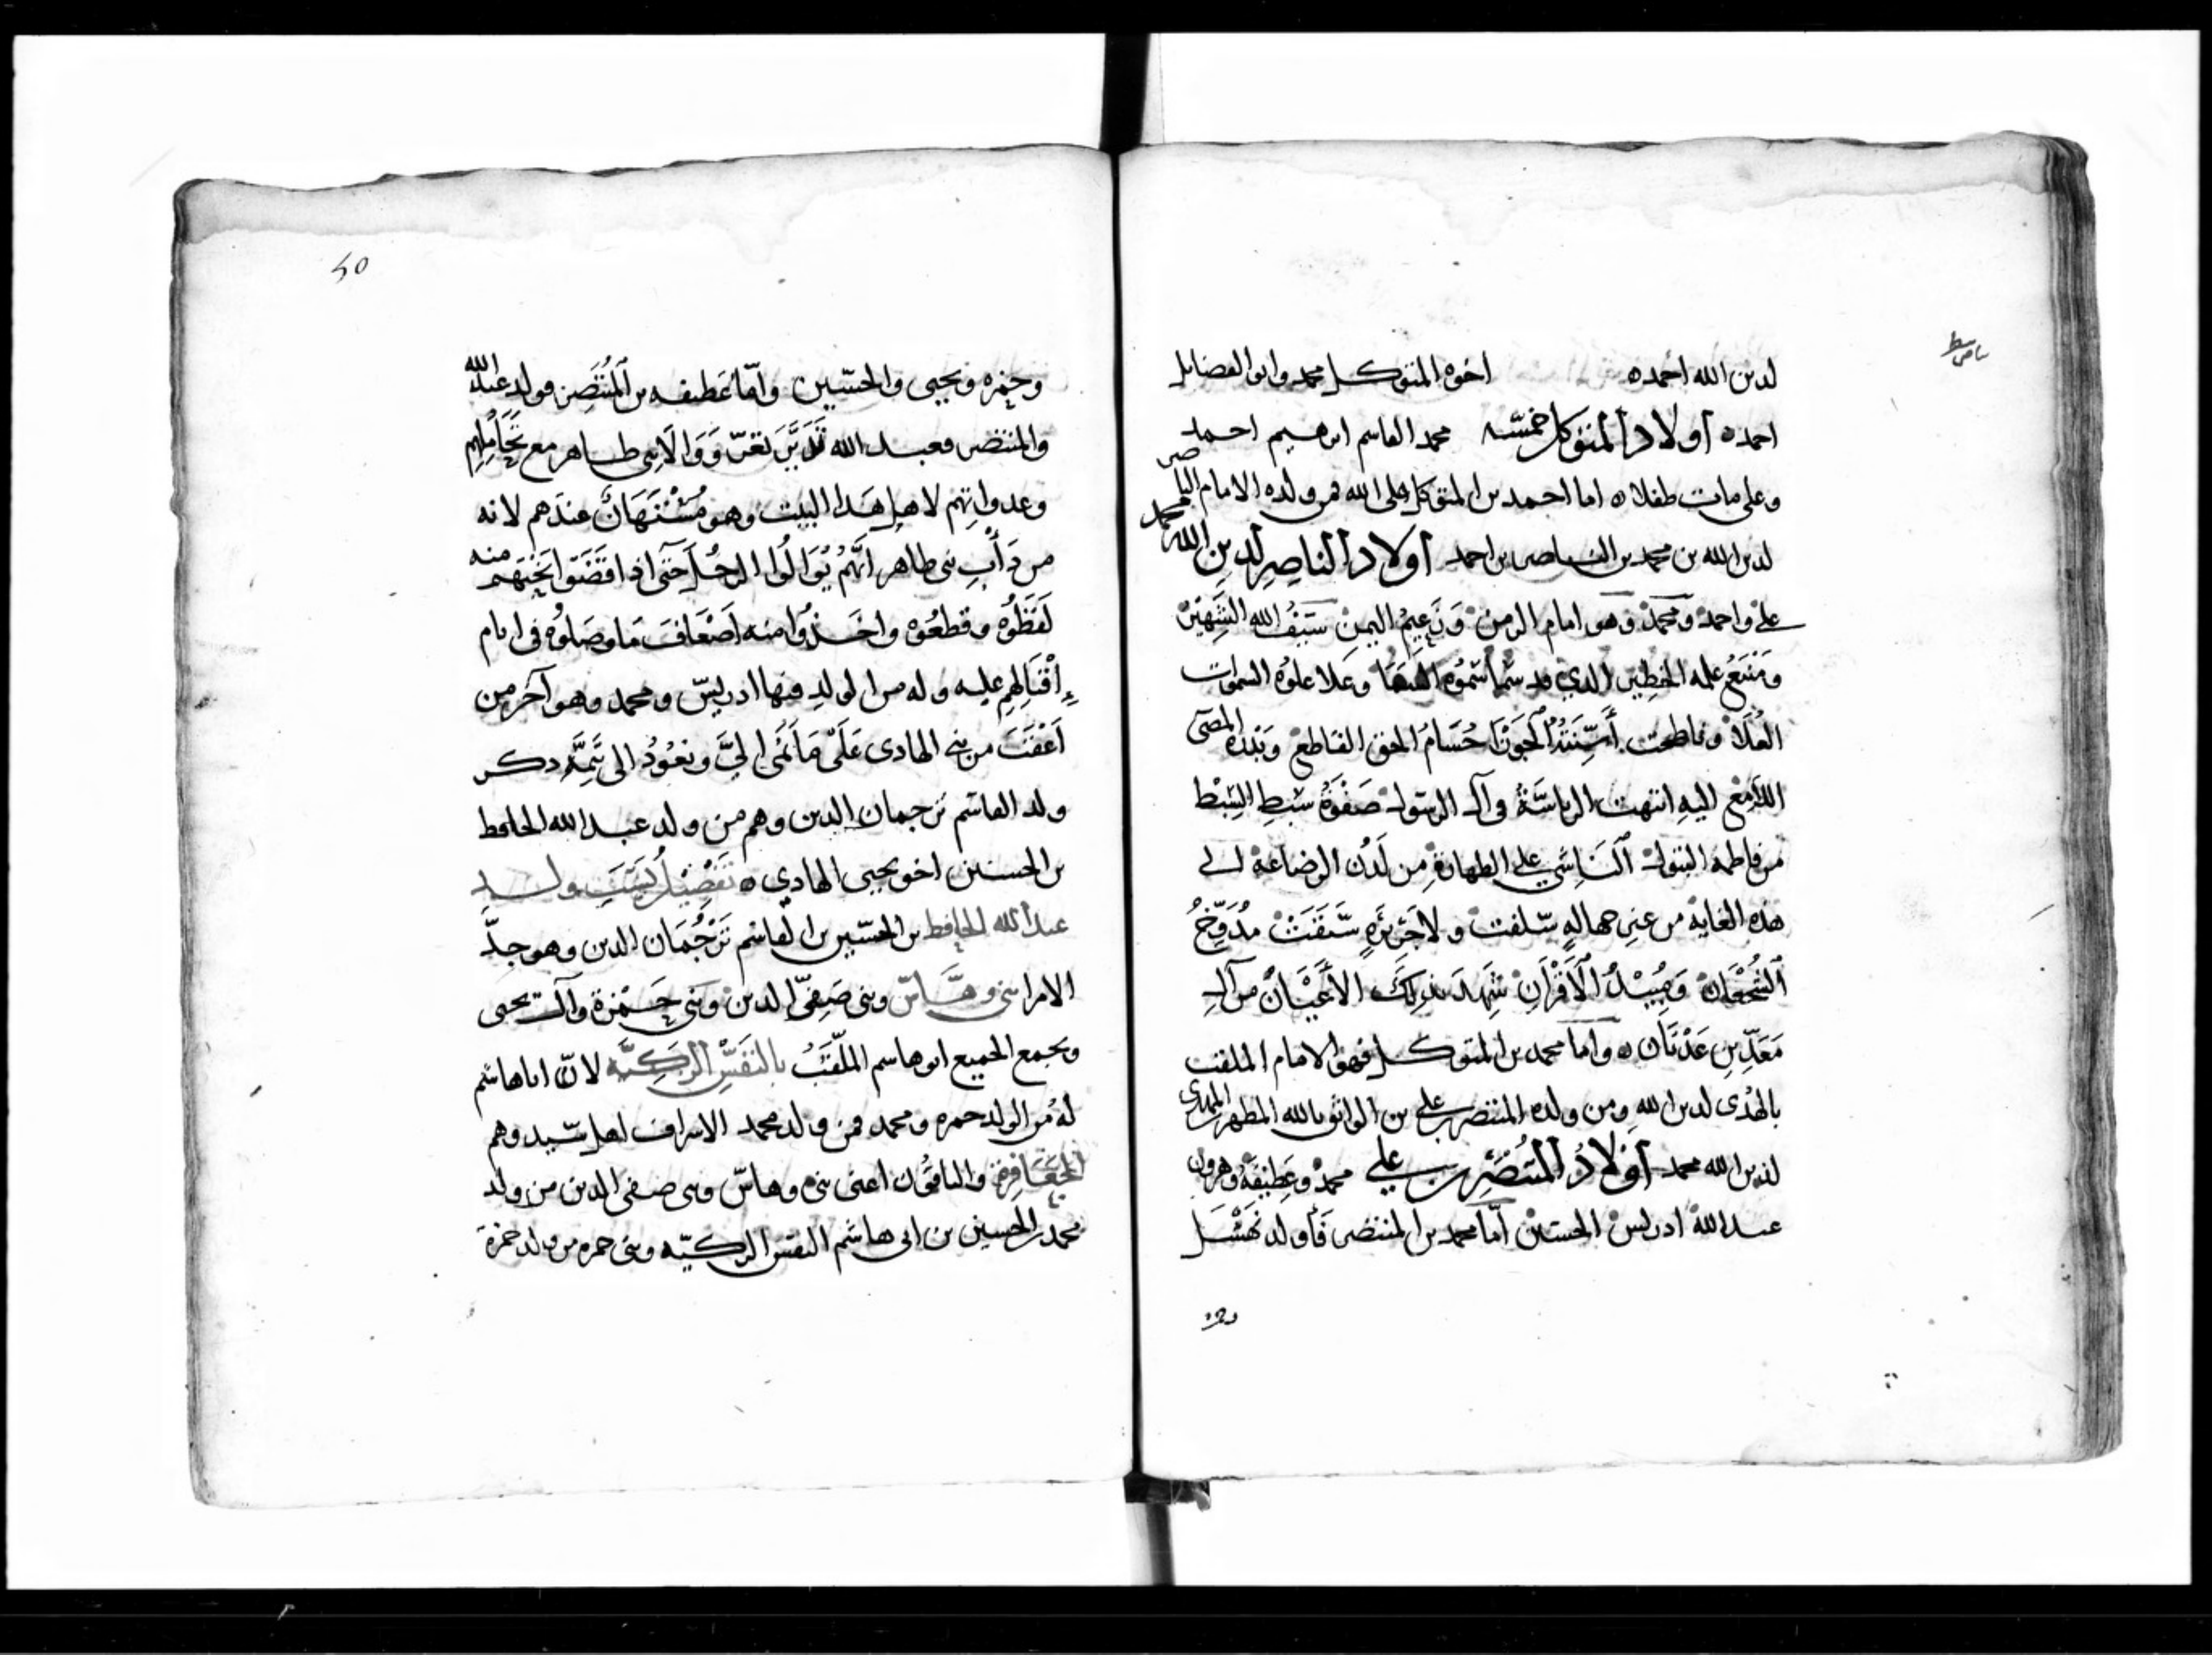 لدين الله احمد ه اخوه المتوكل محمد وابو الفضايل
احمد ه أولاد المتوكل خمسه محمد القاسم ابرهيم احمد
وعلى مات طفلا ه اما احمد بن المتوكل على الله فمن ولده الامام الناصر
لدين الله بن محمد بن الناصر بن احمد أولاد الناصر لدين الله محمد
على واحمد ومحمد وهو امام الزمن وزعيم اليمن سيف الله الشهير
ومنبع علمه الخطير الذي قد سما سموه السها وعلا علوه السموات
العلا وناطحت أسنته الجوزا حسام الحق القاطع وبدره المضي
اللامع اليه انتهت الرياسة في آل الرسول صفوة سبط السبط
من فاطمة البتول الناشي على الطهارة من لدن الرضاعة الى
هذه الغاية من غير جهاله سلفت ولا جريره سبقت مدوخ
الشجعان ومبيد الأقران شهد بذلك الأعيان من آل
معد بن عدنان ه واما محمد بن المتوكل فهو الامام الملقب
بالهدى لدين الله ومن ولده المنتصر على بن الواثق بالله المطهر بن المهدي
لدين الله محمد أولاد المنتصر بن علي محمد وعطيفة وهرون
عبد الله ادريس الحسين اما محمد بن المنتصر فأولد نهشل
وحمزه
50
وحمزه ويحيى والحسين واما عطيفه بن المنتصر فولد عبد الله
والمنتصر فعبد الله تدير تعز ووالا بني طاهر مع تحاملهم
وعدوانهم لاهل هذا البيت وهو مستهان عندهم لانه
من دأب بني طاهر انهم يوالوا الرجل حتى اذا قضوا بخيتهم منه
لفظوه وقطعوه واخذوا منه اضعاف ما وصلوه في ايام
إقبالهم عليه وله من الولد فيها ادريس ومحمد وهو آخر من
أعقب من بني الهادي على ما نمى الي ونعود الى تتمة ذكر
ولد القاسم ترجمان الدين وهم من ولد عبد الله الحافظ
بن الحسين اخو يحيى الهادي ه تفصيل نسب ولد
عبد الله الحافظ بن الحسين بن القاسم ترجمان الدين وهو جد
الامرا بني وهاس وبني صفي الدين وبني حمزة وآل يحيى
ويجمع الجميع ابو هاشم الملقب بالنفس الزكيه لان ابا هاشم
له من الولد حمزه ومحمد فمن ولد محمد الاشراف اهل وهم
الجعافره والباقون اعني بني وهاس وبني صفي الدين من ولد
محمد بن الحسين بن ابي هاشم النفس الزكيه وبني حمزه من ولد حمزة